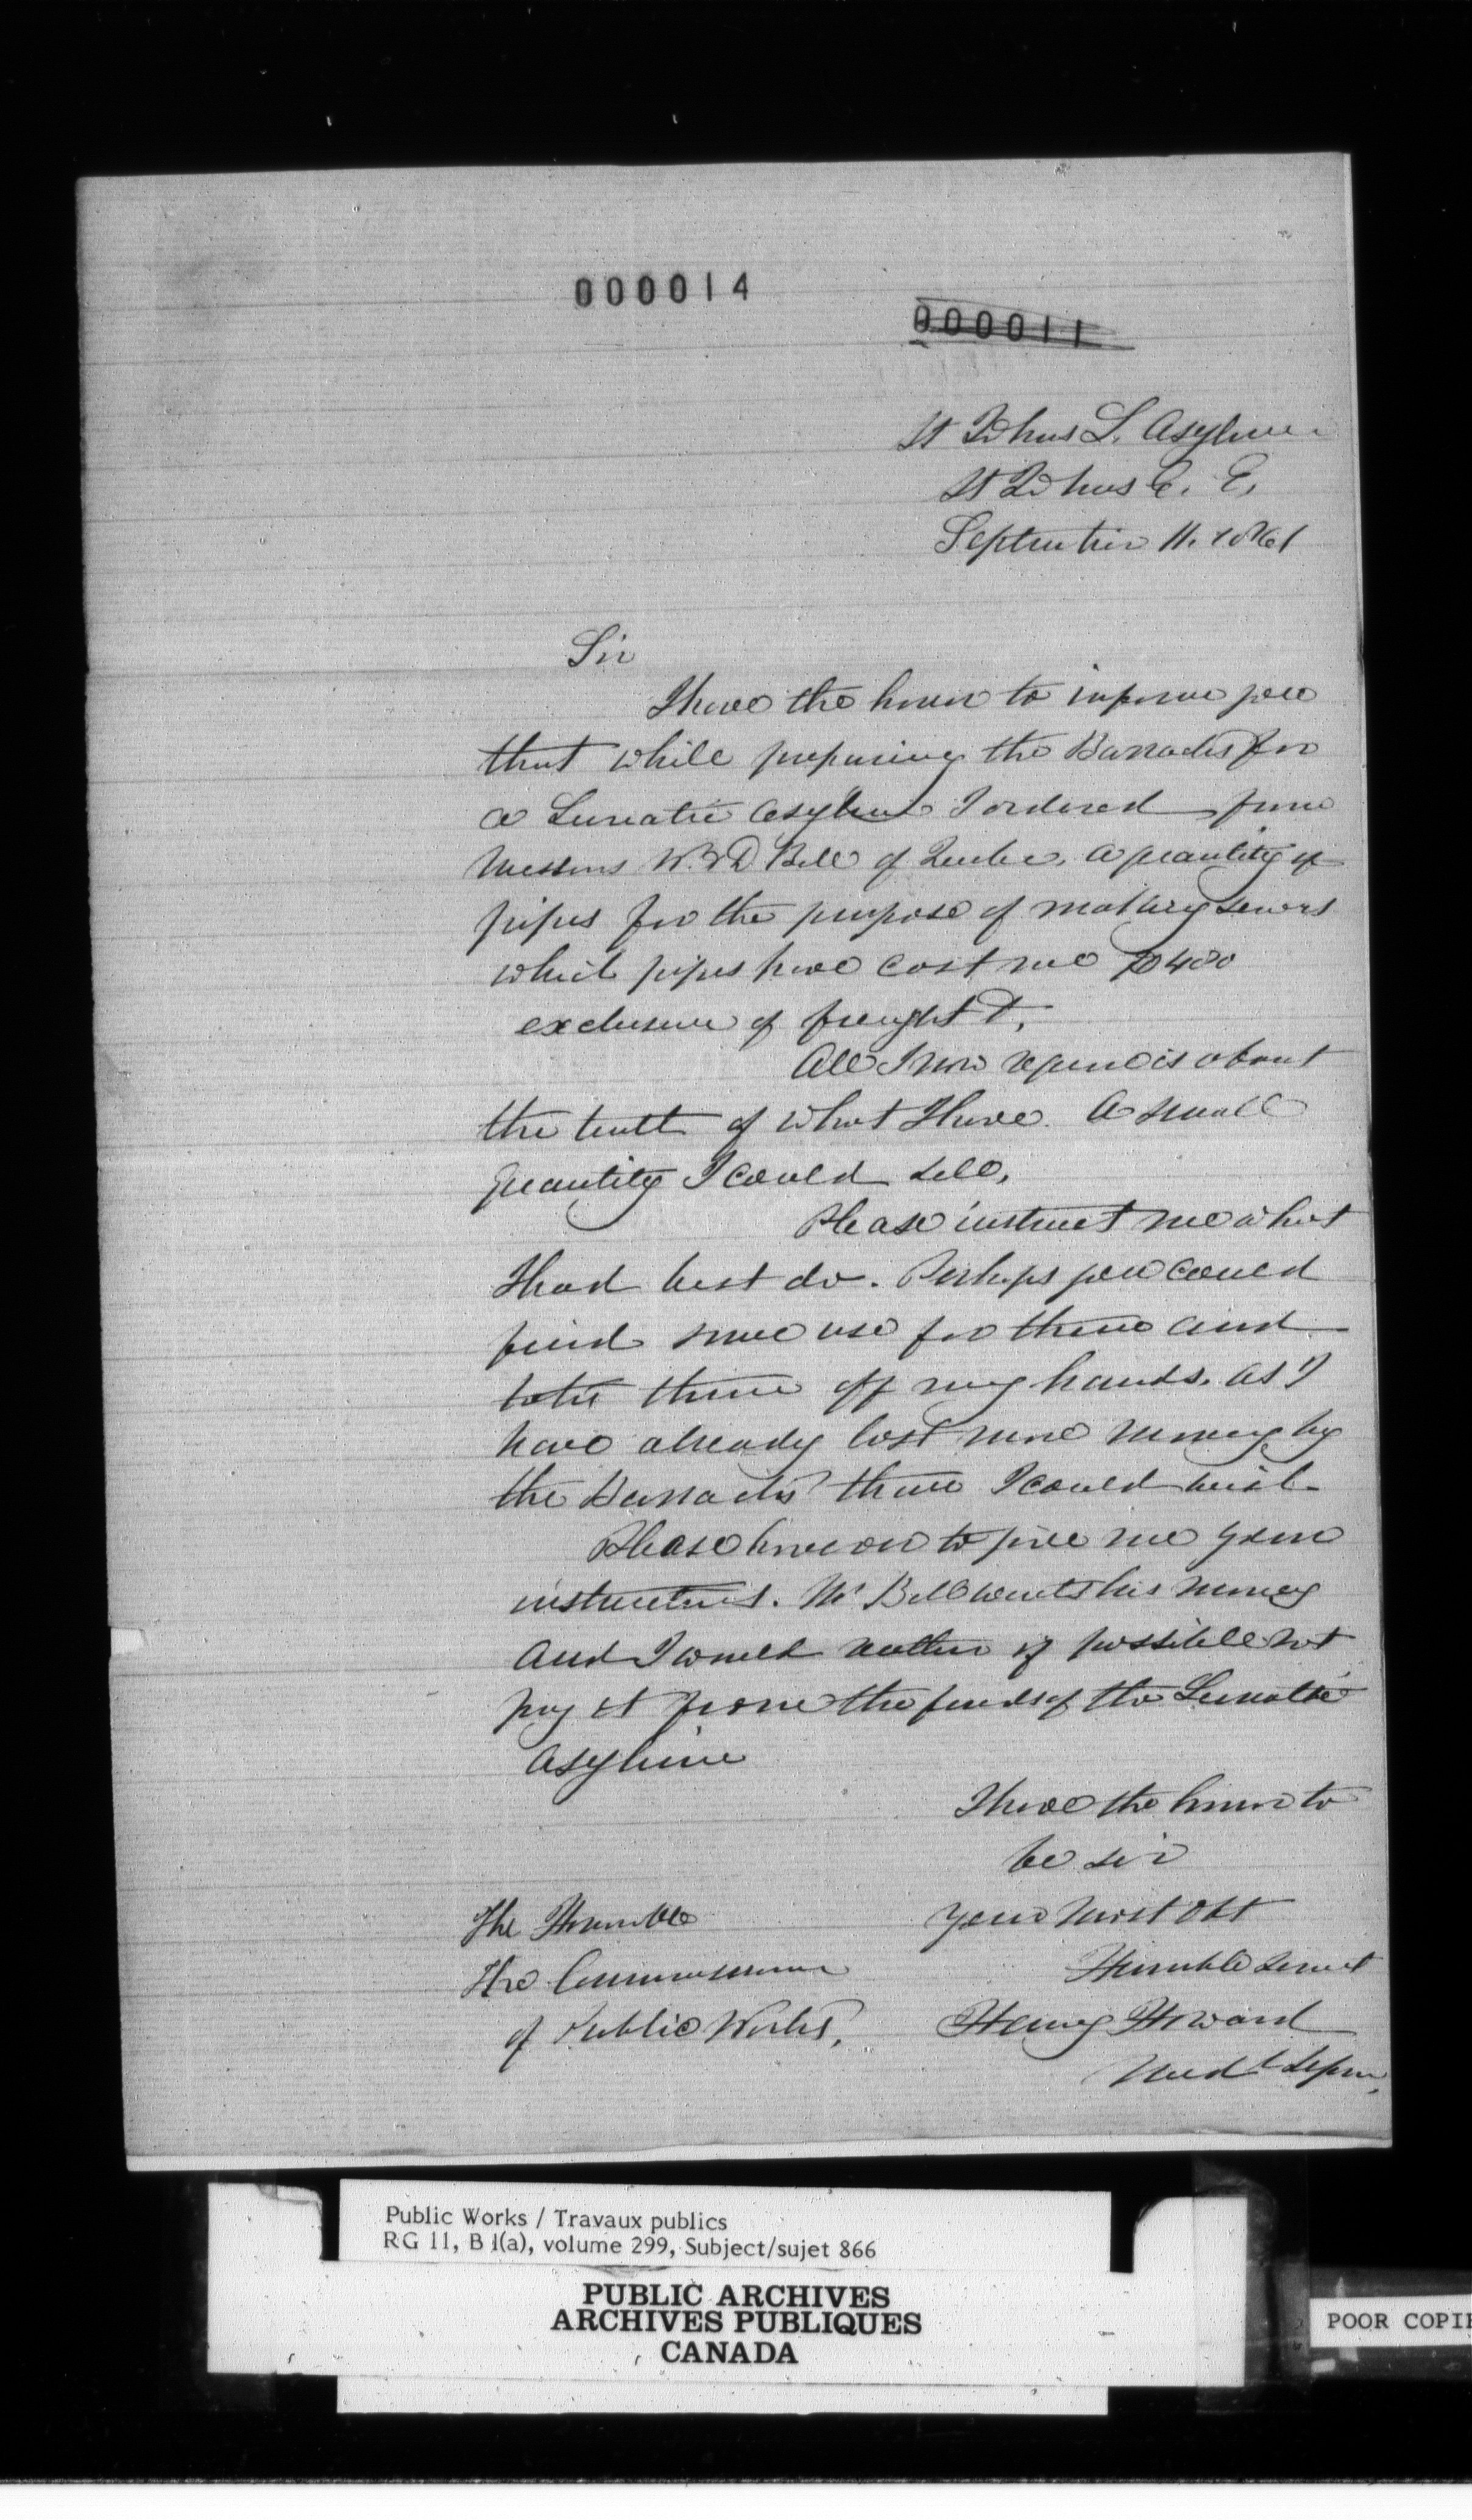 000014
000011
St Johns L. Asylum
St Johns C. E.
September 11. 1861
Sir
I have the honor to inform you
that while preparing the Barracks for
a Lunatic Asylum I ordered from
Messrs W & D Bell of Quebec, a quantity of
pipes for the purpose of making sewers
which pipes have cost me $400
exclusive of freight &.
All I now require is about
the tenth of what I have. A small
quantity I could sell.
Please instruct me what
I had best do. Perhaps you could
find some use for them and
take them off my hands. as I
have already lost more money by
the Barracks than I could wish
Please hurry on to give me your
instructions. Mr Bell wants his money
and I would rather if possible not
pay it from the funds of the Lunatic
Asylum
I have the honor to
be sir
your most Obt
Humble Servt
Henry Howard
Medl Supr.
The Honorable
The Commissioner
of Public Works.
Public Works / Travaux publics
RG 11, B 1(a), volume 299, Subject/sujet 866
PUBLIC ARCHIVES
ARCHIVES PUBLIQUES
CANADA
POOR COPIE